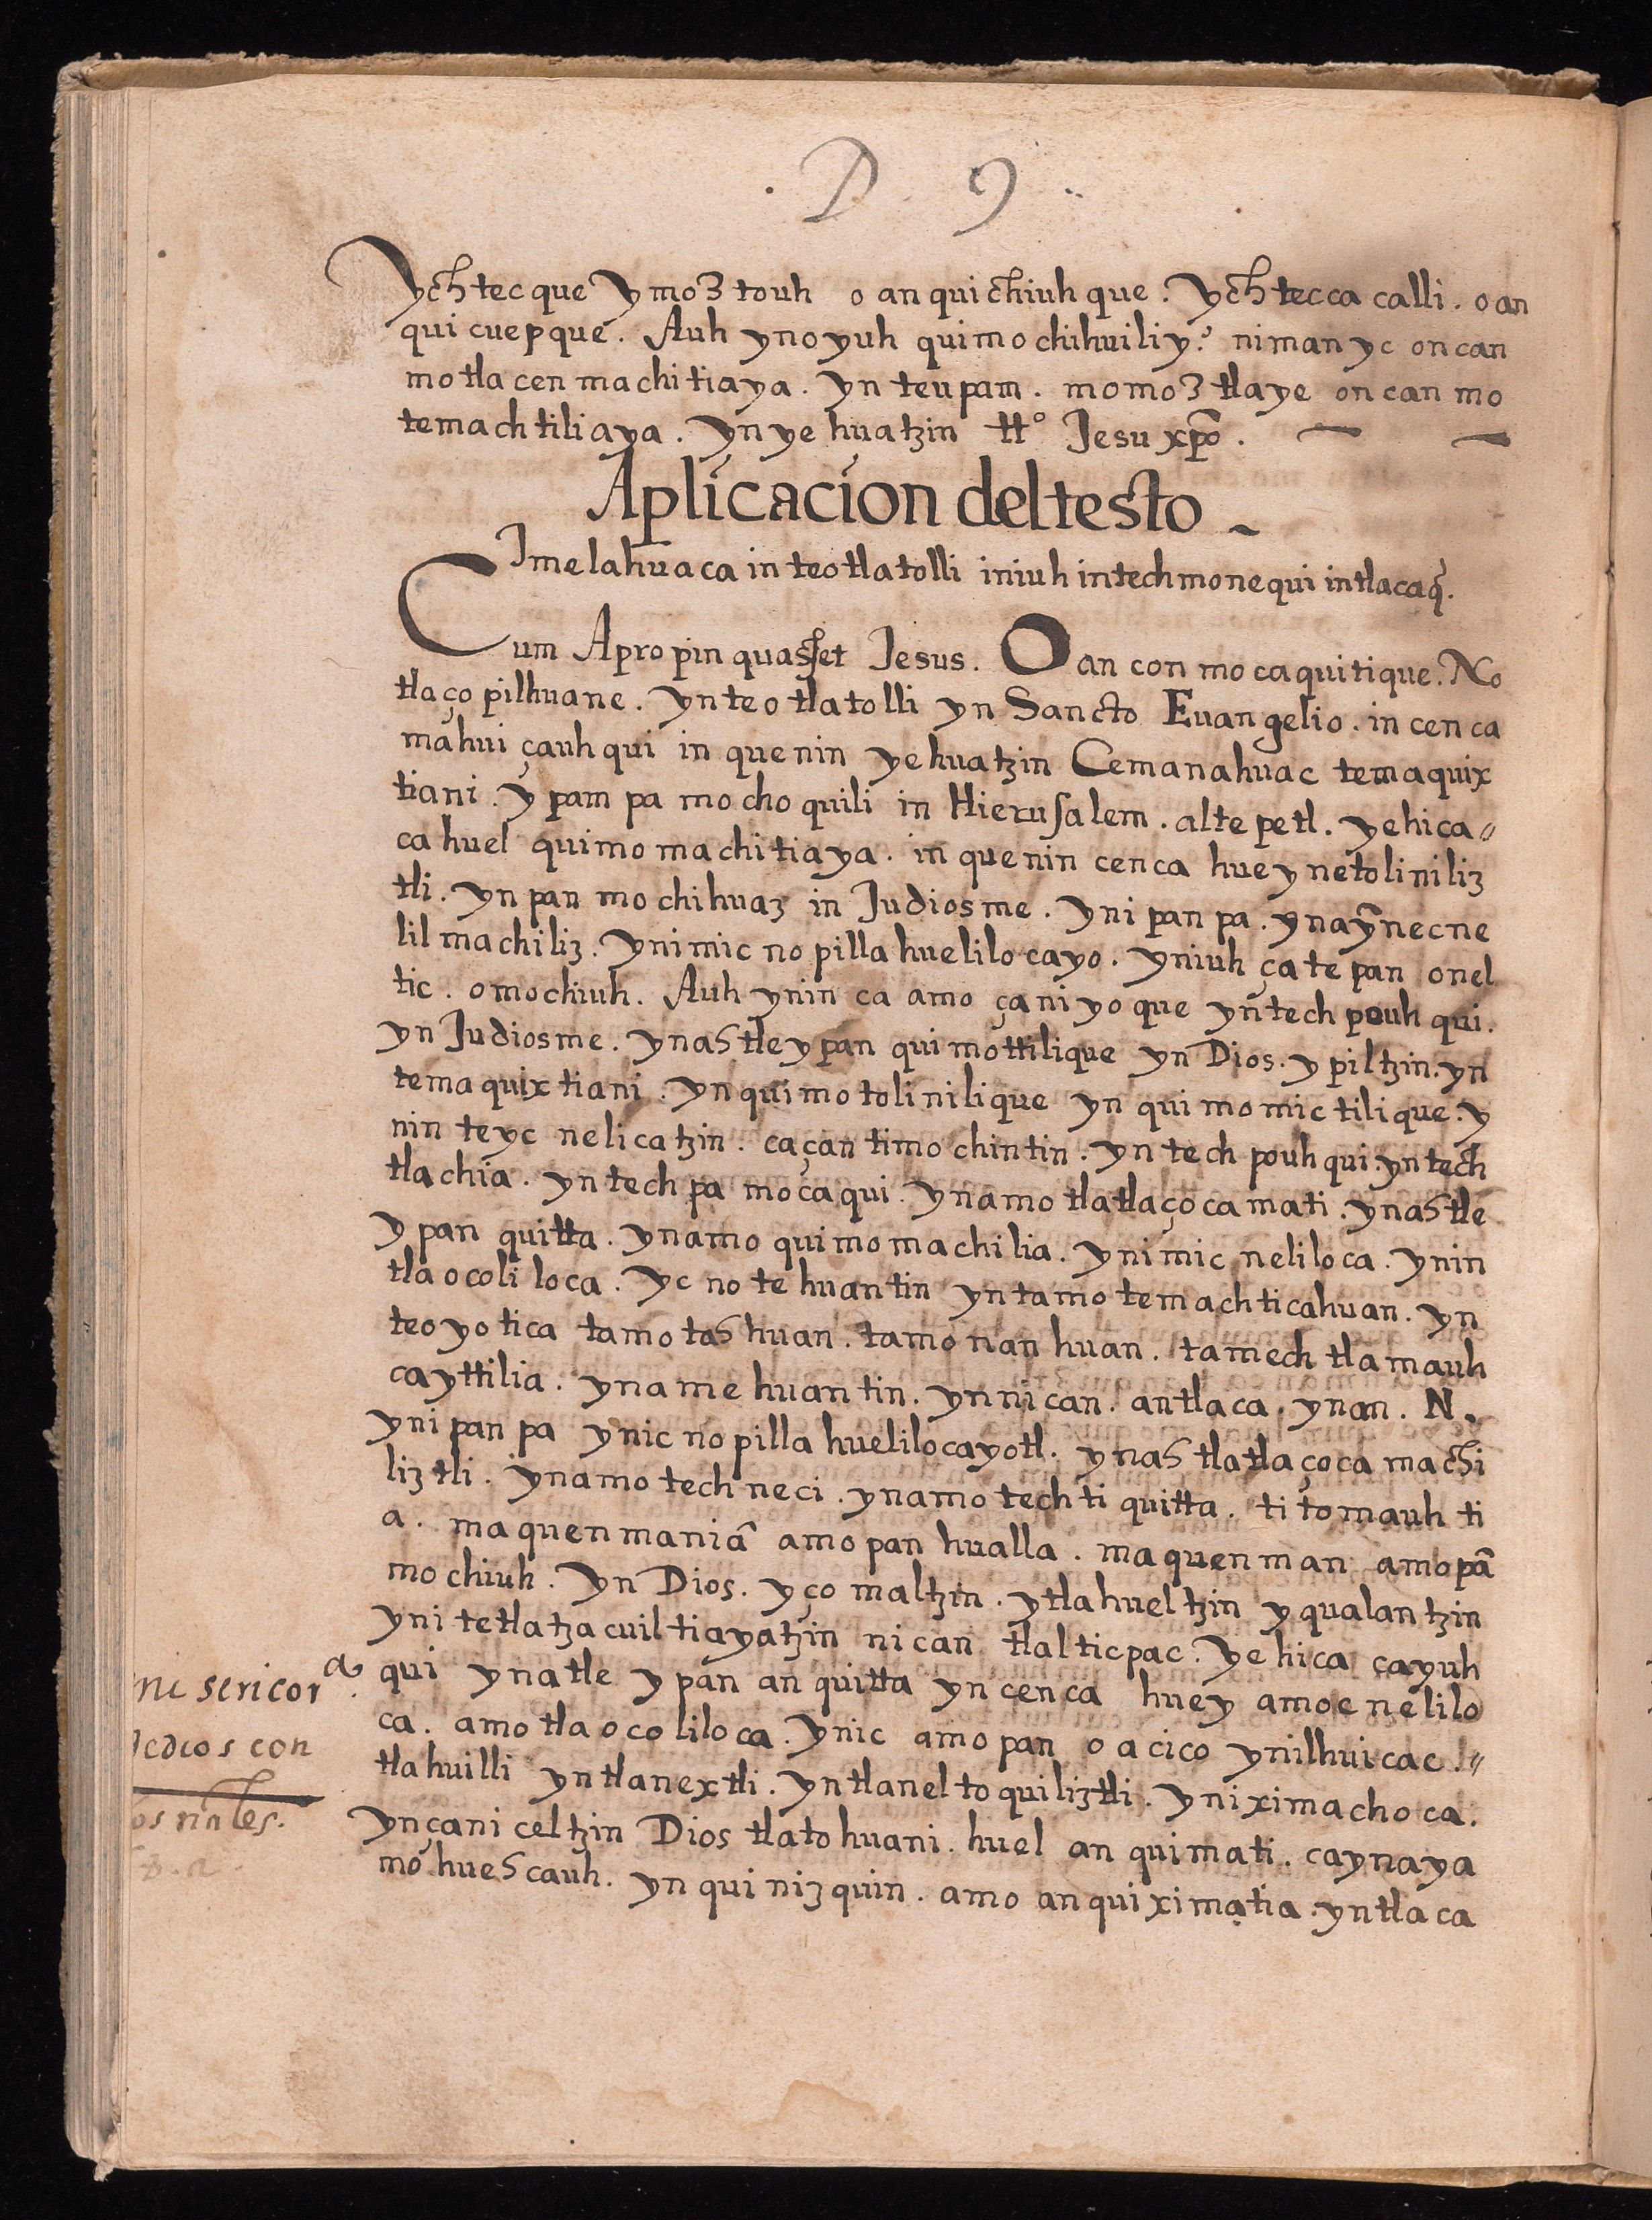 D 9
ychtecque ymoztouh o an quichiuhque. ychtecca calli. o an
qui cuepque. Auh ynoyuh quimochihuiliy? niman yc oncan
motlacenmachitiaya. yn teupam. momoztlaye oncan mo
temachtiliaya. yn yehuatzin tt° Jesu xpõ.
Aplicacion del testo
Imelahuaca in teotlatolli iniuh intechmonequi intlacaq̃.
Cum Apropinquasset Jesus. Oanconmocaquitique. No
tlaçopilhuane. ynteotlatolli yn Sancto Euangelio. in cenca
mahuiçauhqui in quenin yehuatzin Cemanahuac temaquix
tiani. ypampa mochoquili in Hierusalem. altepetl. yehica〃
ca huel quimomachitiaya. in quenin cenca huey netoliniliz
tli. yn pan mochihuaz in Judiosme. ynipanpa. ynaỹnecne
lilmachiliz. ynimicnopillahuelilocayo. yniuh çatepan onel
tic. omochiuh. Auh ynin ca amo çaniyoque yñtechpouhqui.
yn Judiosme. ynastleypan quimottilique yn Dios. ypiltzin. yn
temaquixtiani. yn quimotolinilique yn quimomictilique. y
nin teycnelicatzin. caçan timochintin. yntechpouhqui. yntech
tlachia. yntechpa mocaqui. ynamo tlatlaçocamati. ynastle
ypan quitta. ynamo quimomachilia. ynimicneliloca. ynin
tlaocoliloca. yc no tehuantin yntamotemachticahuan. yn
teoyotica tamotashuan. tamonanhuan. tamechtlamauh
cayttilia. yn amehuantin. ynnican. antlaca. ynan. N.
ynipanpa ynicnopillahuelilocayotl. ynastlatlaçocamachi
liztli. ynamotechneci. ynamotechtiquitta. titomauhti
a. maquenmaniã amopan hualla. maquenman amopã
mochiuh. yn Dios. yçomaltzin. ytlahueltzin yqualantzin
ynitetlatzacuiltiayatzin nican tlalticpac. yehica çayuh
qui ynatle ypan anquitta yn cenca huey amoenelilo
ca. amotlaocoliloca. ynic amopan oacico ynilhuicac.〃
tlahuilli yntlanextli. yntlaneltoquiliztli. yniximachoca.
ynçaniceltzin Dios tlatohuani. huel anquimati. caynaya
mo huescauh. yn quinizquin. amo anquiximatia. yntlaca
misericora
dedios con
os nãles.